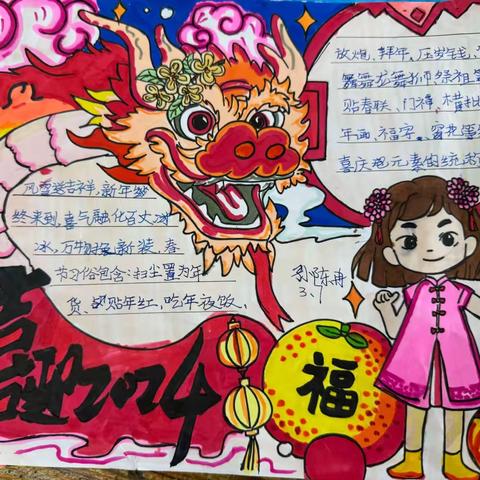 放炮、拜年、压岁钱、
舞舞龙舞狮祭祖
贴春联、门神、横批
年画、福字、窗花
喜庆
风雪送吉祥,新年
终来到,喜气融化百丈
冰,万物换新装,春
节习俗包含:扫尘置为年
货、贴年红,吃年夜饭、
孙陈冉
3、1
喜迎2024
福